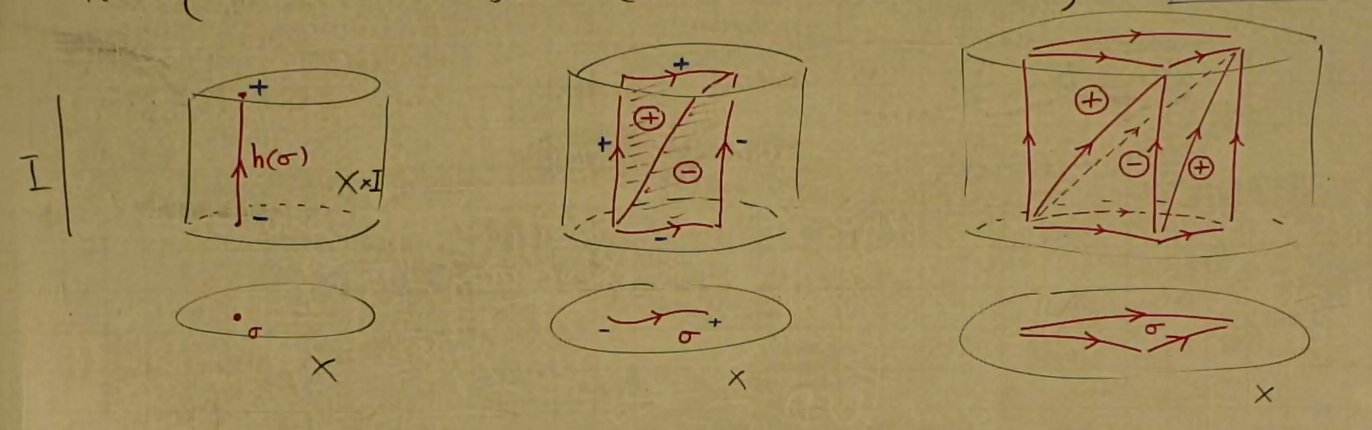 I
+
h(σ)
X×I
-
σ
X
+
+
⊕
⊖
-
-
-
+
σ
X
⊕
⊖
⊕
σ
X